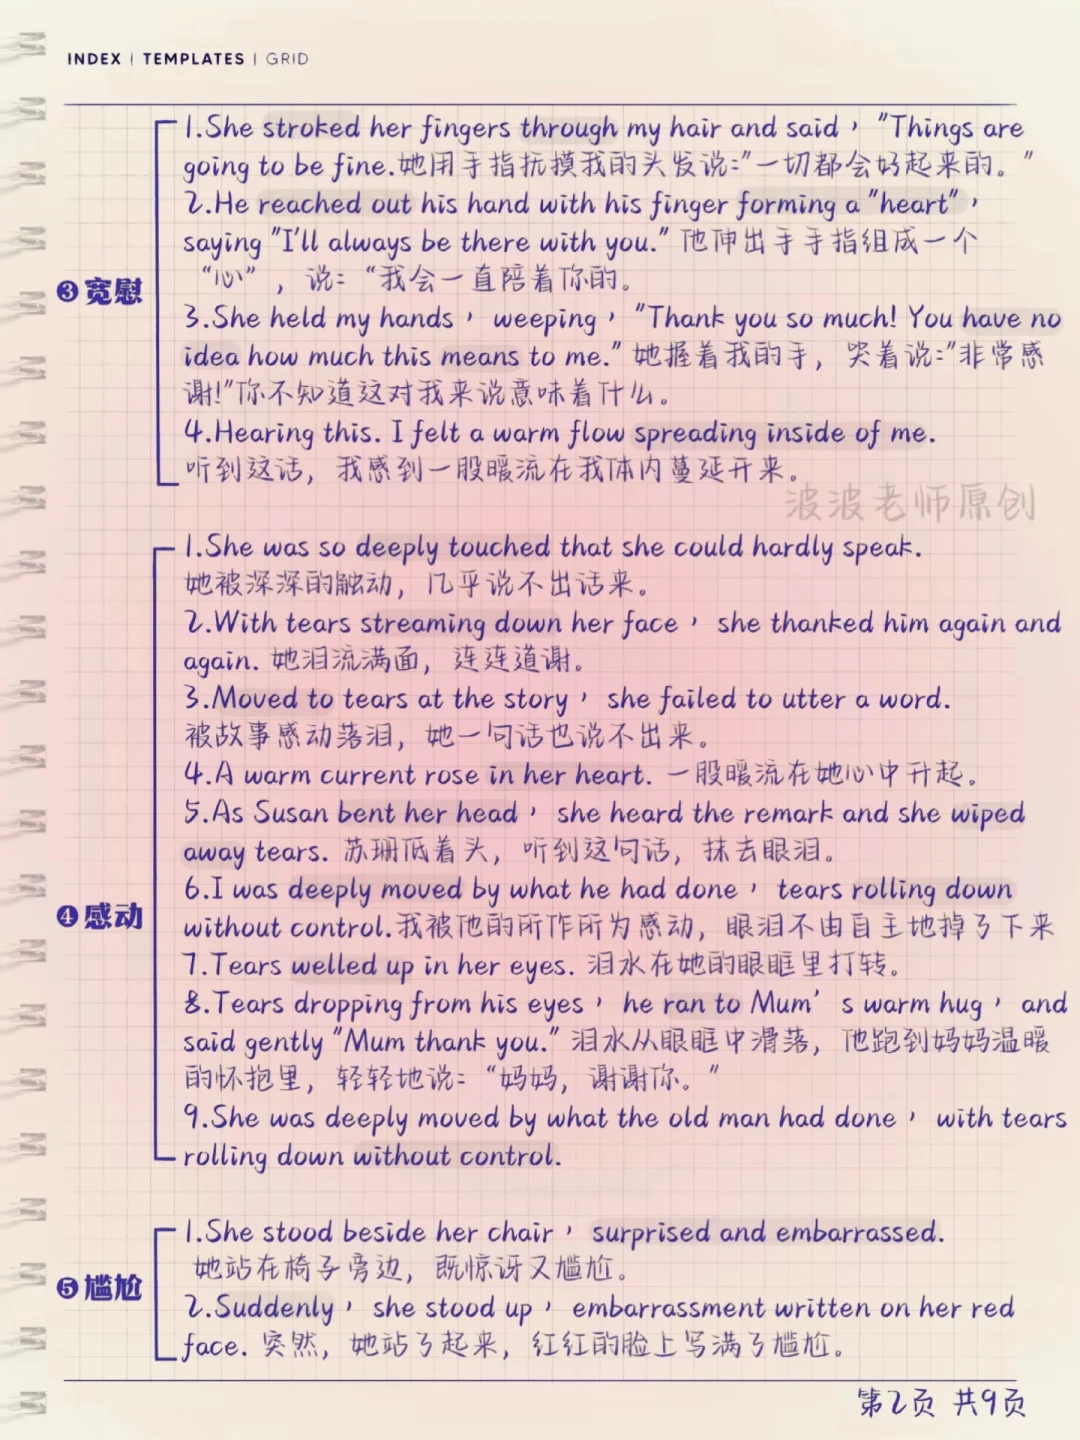 INDEX | TEMPLATES | GRID
1.She stroked her fingers through my hair and said，"Things are
going to be fine.她用手指抚摸我的头发说:"一切都会好起来的。"
2.He reached out his hand with his finger forming a "heart"，
saying "I'll always be there with you." 他伸出手手指组成一个
"心"，说："我会一直陪着你的。
❸宽慰
3.She held my hands，weeping，"Thank you so much! You have no
idea how much this means to me." 她握着我的手，哭着说:"非常感
谢!"你不知道这对我来说意味着什么。
4.Hearing this. I felt a warm flow spreading inside of me.
听到这话，我感到一股暖流在我体内蔓延开来。
波波老师原创
1.She was so deeply touched that she could hardly speak.
她被深深的触动，几乎说不出话来。
2.With tears streaming down her face，she thanked him again and
again. 她泪流满面，连连道谢。
3.Moved to tears at the story，she failed to utter a word.
被故事感动落泪，她一句话也说不出来。
4.A warm current rose in her heart. 一股暖流在她心中升起。
5.As Susan bent her head，she heard the remark and she wiped
away tears. 苏珊低着头，听到这句话，抹去眼泪。
6.I was deeply moved by what he had done，tears rolling down
❹感动
without control.我被他的所作所为感动，眼泪不由自主地掉了下来
7.Tears welled up in her eyes. 泪水在她的眼眶里打转。
8.Tears dropping from his eyes，he ran to Mum's warm hug，and
said gently "Mum thank you." 泪水从眼眶中滑落，他跑到妈妈温暖
的怀抱里，轻轻地说："妈妈，谢谢你。"
9.She was deeply moved by what the old man had done，with tears
rolling down without control.
1.She stood beside her chair，surprised and embarrassed.
她站在椅子旁边，既惊讶又尴尬。
❺尴尬
2.Suddenly，she stood up，embarrassment written on her red
face. 突然，她站了起来，红红的脸上写满了尴尬。
第2页 共9页